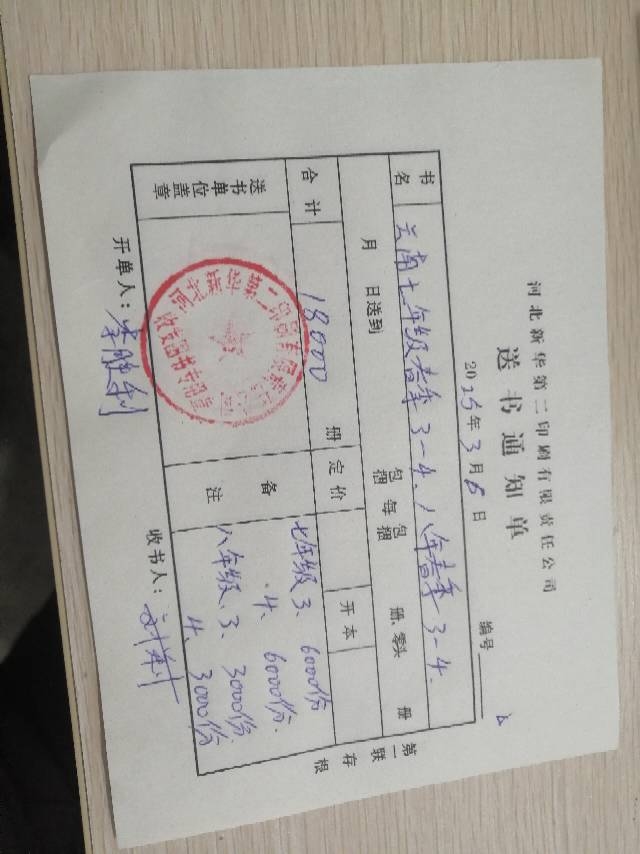 河北新华第二印刷有限责任公司
送书通知单
2025年3月6日
编号
书名 云南七年级春季3-4.八年春季3-4.
月 日送到 包捆 每 包捆 册.零头 册
合计 18000 册 定价 开本
送书单位盖章
收发图书专用章
备注
七年级3、6000份
.4、6000份.
八年级、3、3000份.
4、3000份
开单人:李胜利
收书人:
第一联 存根